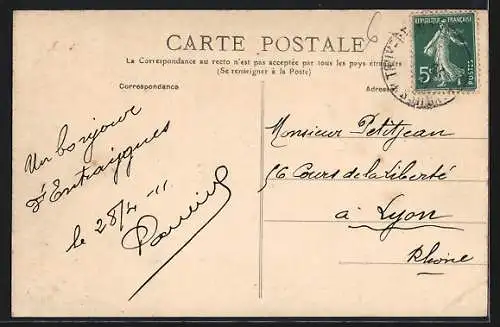 6
CARTE POSTALE
La Correspondance au recto n'est pas acceptée par tous les pays étrangers
(Se renseigner à la Poste)
REPUBLIQUE FRANÇAISE
5c
POSTES
Correspondance
Adresse
Un bonjour
d'Entraigues
le 28/4 - 11
Monsieur Petitjean
56 Cours de la Liberté
à Lyon
Rhône